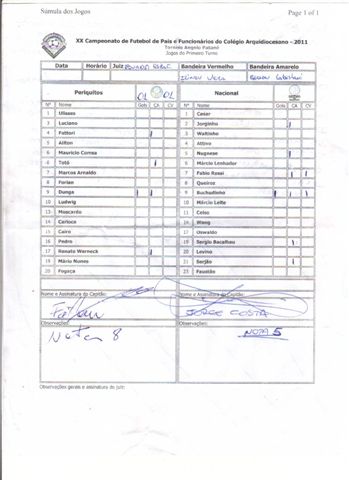 Súmula dos Jogos Page 1 of 1
XX Campeonato de Futebol de Pais e Funcionários do Colégio Arquidiocesano - 2011
Torneio Angelo Patané
Jogos do Primeiro Turno
Data Horário Juiz Bandeira Vermelho Bandeira Amarelo
Periquitos 01 01 Nacional
Nº Nome Gols CA CV Nº Nome Gols CA CV
1 Ulisses 1 Cesar
3 Luciano 2 Jorginho
4 Fattori 3 Waltinho
5 Ailton 4 Attivo
5 Mauricio Correa 5 Nugnese
6 Totó 6 Márcio Lenhador
7 Marcos Arnaldo 7 Fabio Rossi
8 Florian 8 Queiroz
9 Dunga 9 Buchudinho
10 Ludwig 10 Márcio Leite
13 Moscardo 11 Celso
14 Carioca 16 Wang
15 Cairo 17 Oswaldo
16 Pedro 19 Sergio Bacalhau
17 Renato Werneck 20 Levino
19 Mário Nunes 21 Serjão
20 Fogaça 23 Faustão
Nome e Assinatura do Capitão: Nome e Assinatura do Capitão:
JORGE COSTA
Observações: Observações:
Nota 8 NOTA 5
Observações gerais e assinatura do juiz: